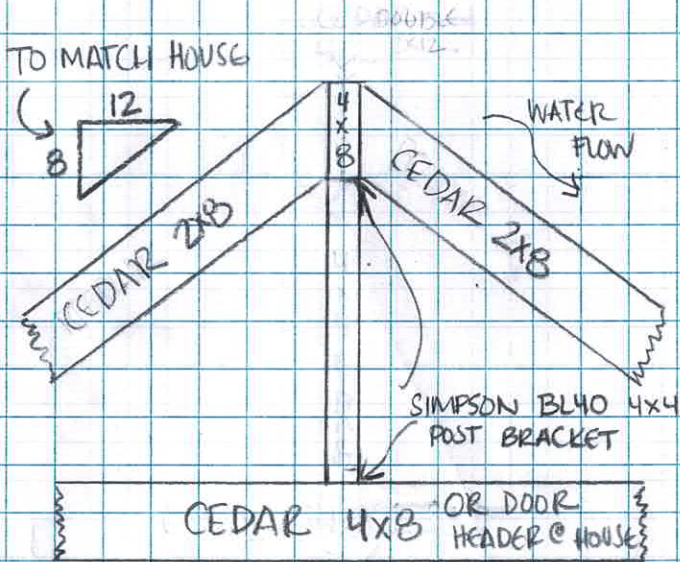 DOUBLE
2X12
TO MATCH HOUSE
12
8
4
X
8
WATER
FLOW
CEDAR 2X8
CEDAR 2X8
SIMPSON BL40 4X4
POST BRACKET
CEDAR 4X8
OR DOOR
HEADER @ HOUSE